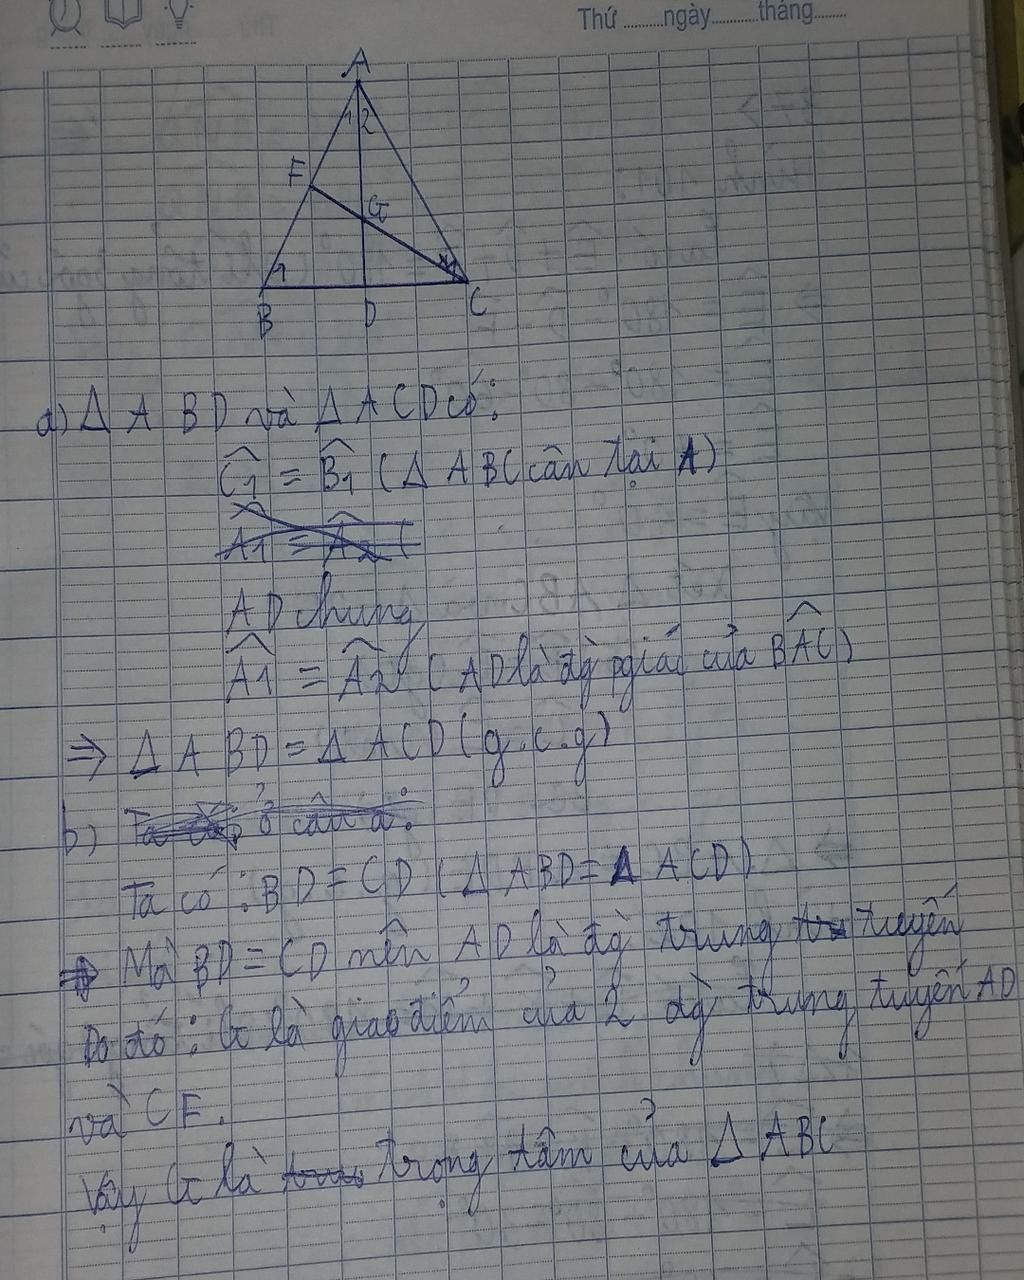 Thứ .........ngày...........tháng........
A
1 2
F
G
1
1
B D C
a) Δ A BD và Δ A CD có:
Ĉ1 = B̂1 (Δ ABC cân tại A)
Â1 = Â2 (
AD chung
Â1 = Â2 (AD là đg pgiác của BÂC)
=> Δ A BD = Δ ACD (g.c.g)
b) Ta có ở câu a:
Ta có : BD = CD (Δ ABD = Δ ACD)
=> Mà BD = CD nên AD là đg trung tuyến
Do đó : G là giao điểm của 2 đg trung tuyến AD
và CF.
Vậy G là trọng tâm của Δ ABC